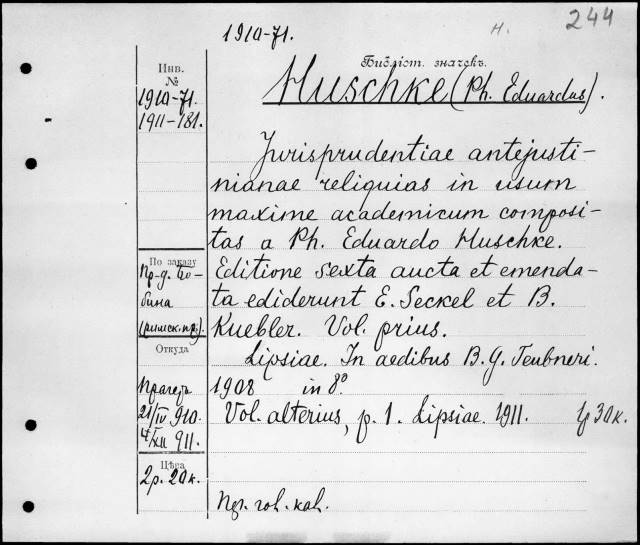 1910-71.
н.
244
Инв.
№
1910-71.
1911-181.
Библіот. значекъ.
Huschke (Ph. Eduardus).
Jurisprudentiae antejusti-
nianae reliquias in usum
maxime academicum composi-
tas a Ph. Eduardo Huschke.
Editione sexta aucta et emenda-
ta ediderunt E. Seckel et B.
Kuebler. Vol. prius.
Lipsiae. In aedibus B. G. Teubneri.
1908 in 8º.
Vol. alterius, p. 1. Lipsiae. 1911. 1р 30к.
По заказу
Пр-д. Бо-
бина
(римск. пр.).
Откуда
Прагеръ
21/IV 910.
4/XII 911.
Цѣна
2р. 20к.